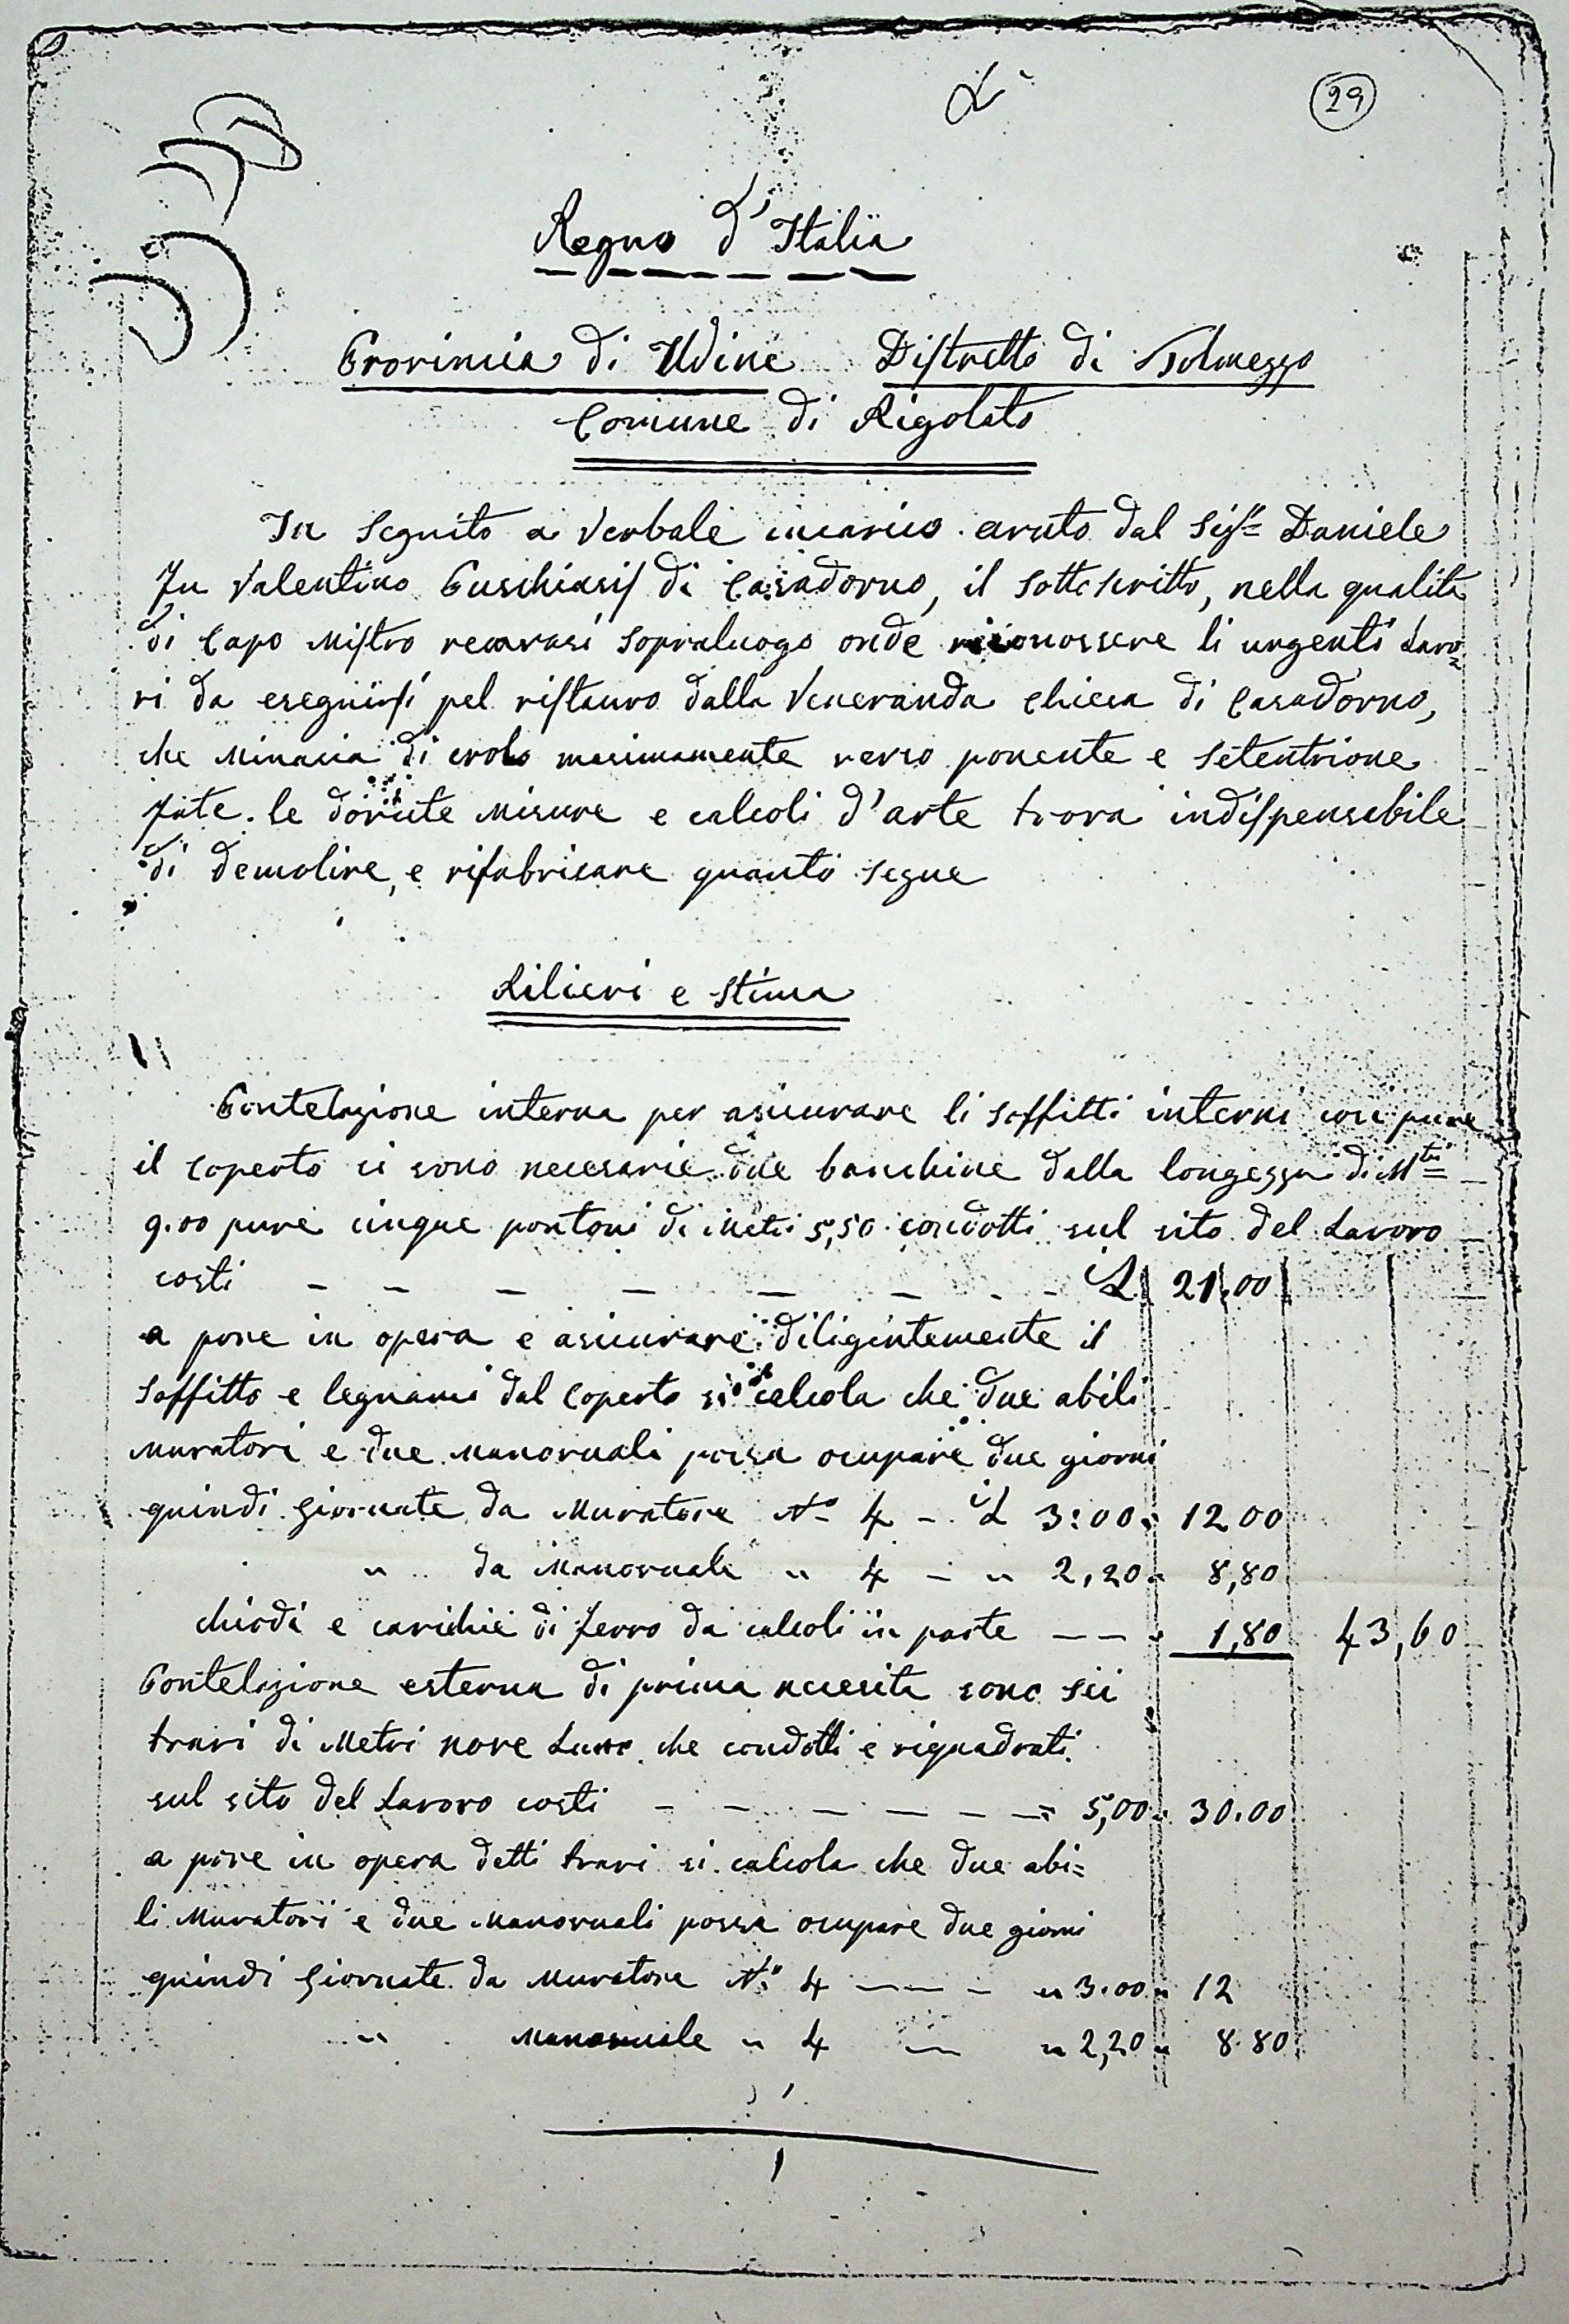 29
Regno d'Italia
Provincia di Udine Distretto di Tolmezzo
Comune di Rigolato
In seguito a Verbale incarico avuto dal Sigr Daniele
fu Valentino Puschiasis di Casadorno, il sottoscritto, nella qualita
di Capo Mistro recavasi sopraluogo onde riconossere li urgenti Lavo=
ri da eseguirsi pel ristauro dalla Veneranda Chiesa di Casadorno,
che Minacia di crolo masimamente verso ponente e setentrione
fate le dovute misure e calcoli d'arte trova indispensabile
di demolire, e rifabricare quanto segue
Rilievi e Stima
Pontelazione interna per asicurare li soffitti interni cosi pure
il coperto ci sono necesarie due banchine dalla longezza di Mtri
9.00 pure cinque pontoni di Metri 5,50 condotti sul sito del Lavoro
costi L 21.00
a pore in opera e asicurare diligintemente il
soffitto e legnami dal coperto si calcola che due abili
muratori e due manovuali possa ocupare due giorni
quindi Giornate da Muratore No 4 - L 3:00 " 12 00
" da Manovuale " 4 - " 2,20 " 8,80
chiodi e carichie di ferro da calcoli in parte -- " 1,80 43,60
Pontelazione esterna di prima necesita sono sei
travi di Metri nove che condotti e riquadrati
sul sito del Lavoro costi - - - - - - 5,00 " 30.00
a pore in opera detti travi si calcola che due abi=
li Muratori e due Manovuali possa ocupare due giorni
quindi Giornate da Muratore No 4 --- " 3.00 " 12
" Manovuale " 4 - " 2,20 " 8.80